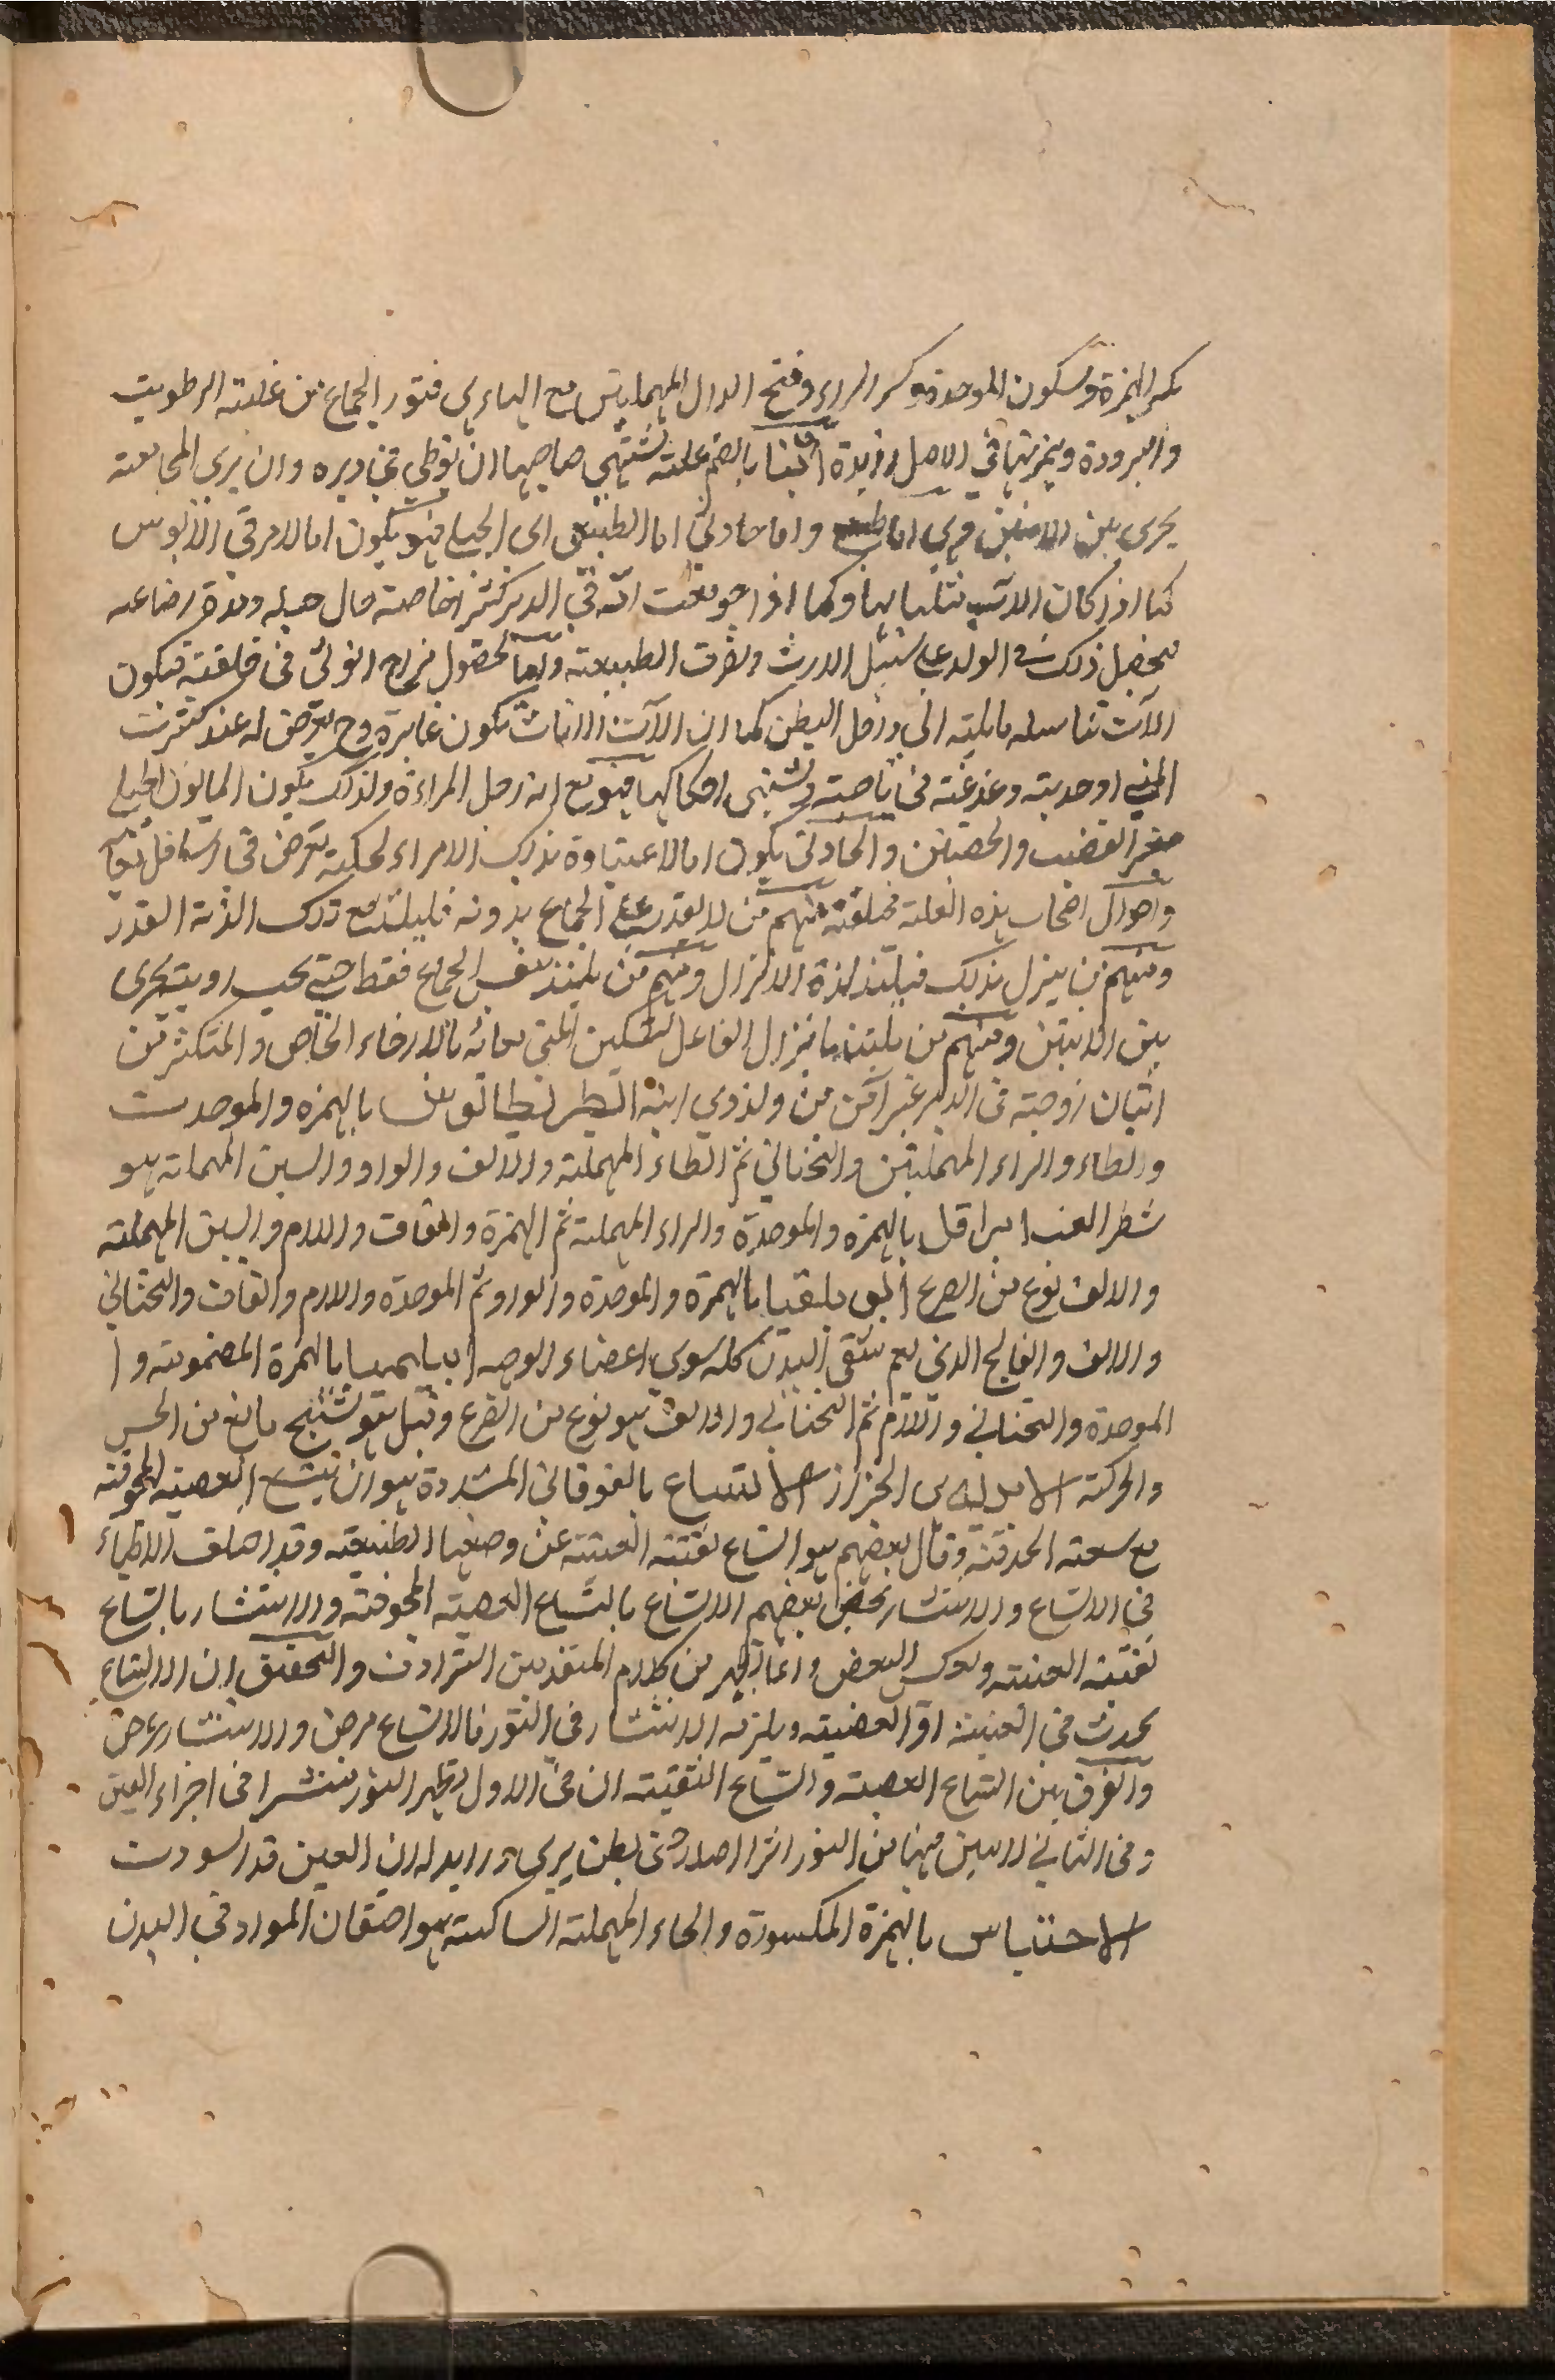 بكسر الهمزة وسكون الموحدة وكسر الراء وفتح الدال المهملتين مع الهاء هي فتور الجماع من غلبته الرطوبت
والبرودة وهمزتها في الاصل زايدة ابنا بالضم علته تشتهي صاحبها ان يوطى في دبره وان يرى المجامعته
يجري بين الاثنين وهي اما طبيعي واما حادثي اما الطبيعي اي الجبلي فهو يكون اما لامر في الابوين
كما اذا كان الاب مبتليا بها وكما اذا جومعت امه في الدبر كثيرا خاصته حال حبله ومدة رضاعه
فيحصل ذلك في الولد على سبيل الارث وتصرف الطبيعته واما لحصول مزاج انوثي في خلقته فيكون
الآت تناسله مايلته الى داخل البطن كما ان الآت الاناث تكون غايرة وح يعرض له عند كثرت
المني او حدبته دغدغته في ناحيته وتشتهي احكاكها فهو مع انه رجل المراءة ولذلك يكون المابون الجبلي
صغير القضيب والخصيتين والحادثي يكون اما لاعتياده بذلك الامر او لحكته تعرض في اسافل معا
واحوال اصحاب هذه العلته مختلفته فمنهم من لا يقدر على الجماع بدونه فيلتذ مع ذلك الذته القدر
ومنهم من ينزل بذلك فيلتذ لذة الانزال ومنهم من يلتذ بنفس الجماع فقط حتى يحب او يتجرى
بين الاثنين ومنهم من يلتذ بانزال الفاعل لتسكين المني معائه بالارخاء الخاص والمتكثر من
اتيان زوجته في الدبر غير آمن من ولد ذوي ابنه ابطريطاوس بالهمزه والموحدت
والطاء والراء المهملتين والتحتاني ثم الطاء المهملته والالف والواو والسين المهملته هو
شطر الغب ابراقلسا بالهمزه والموحدة والراء المهملته ثم الهمزة والقاف واللام والسين المهملته
والالف نوع من الصرع ابوبلقيا بالهمزة والموحدة والواو ثم الموحدة واللام والقاف والتحتاني
والالف والفالج الذي يعم شقي البدن كله سوى اعضاء الوجه ابيلميا بالهمزة المضمومته و
الموحدة والتحتاني واللام ثم التحتاني والالف هو نوع من الصرع وقيل هو تشنج مانع من الحس
والحركته الابدليا هي الحزاز الاتساع بالفوقاني المشددة هو ان يتسع العصبته المجوفته
مع سعته الحدقته وقال بعضهم هو اتساع ثقبته العنبيته عن وضعها الطبيعيته وقد اختلف الاطباء
في الاتساع والانتشار فخص بعضهم الاتساع باتساع العصبته المجوفته والانتشار باتساع
ثقبته العنبته وعكس البعض وانما يظهر من كلام المتقدمين الترادف والتحقيق ان الاتساع
يحدث في العنبيته او العصبيته ويلزمه الانتشار في النور فالاتساع مرض والانتشار عرض
والفرق بين اتساع العصبته واتساع الثقبته ان في الاول يظهر النور منتشرا في اجزاء العين
وفي الثاني لا يتبين فيها من النور اثرا اصلا حتى يظن يرى من لا يدله ان العين قد اسودت
الاحتباس بالهمزة المكسورة والحاء المهملته الساكنته هو احتقان المواد في البدن